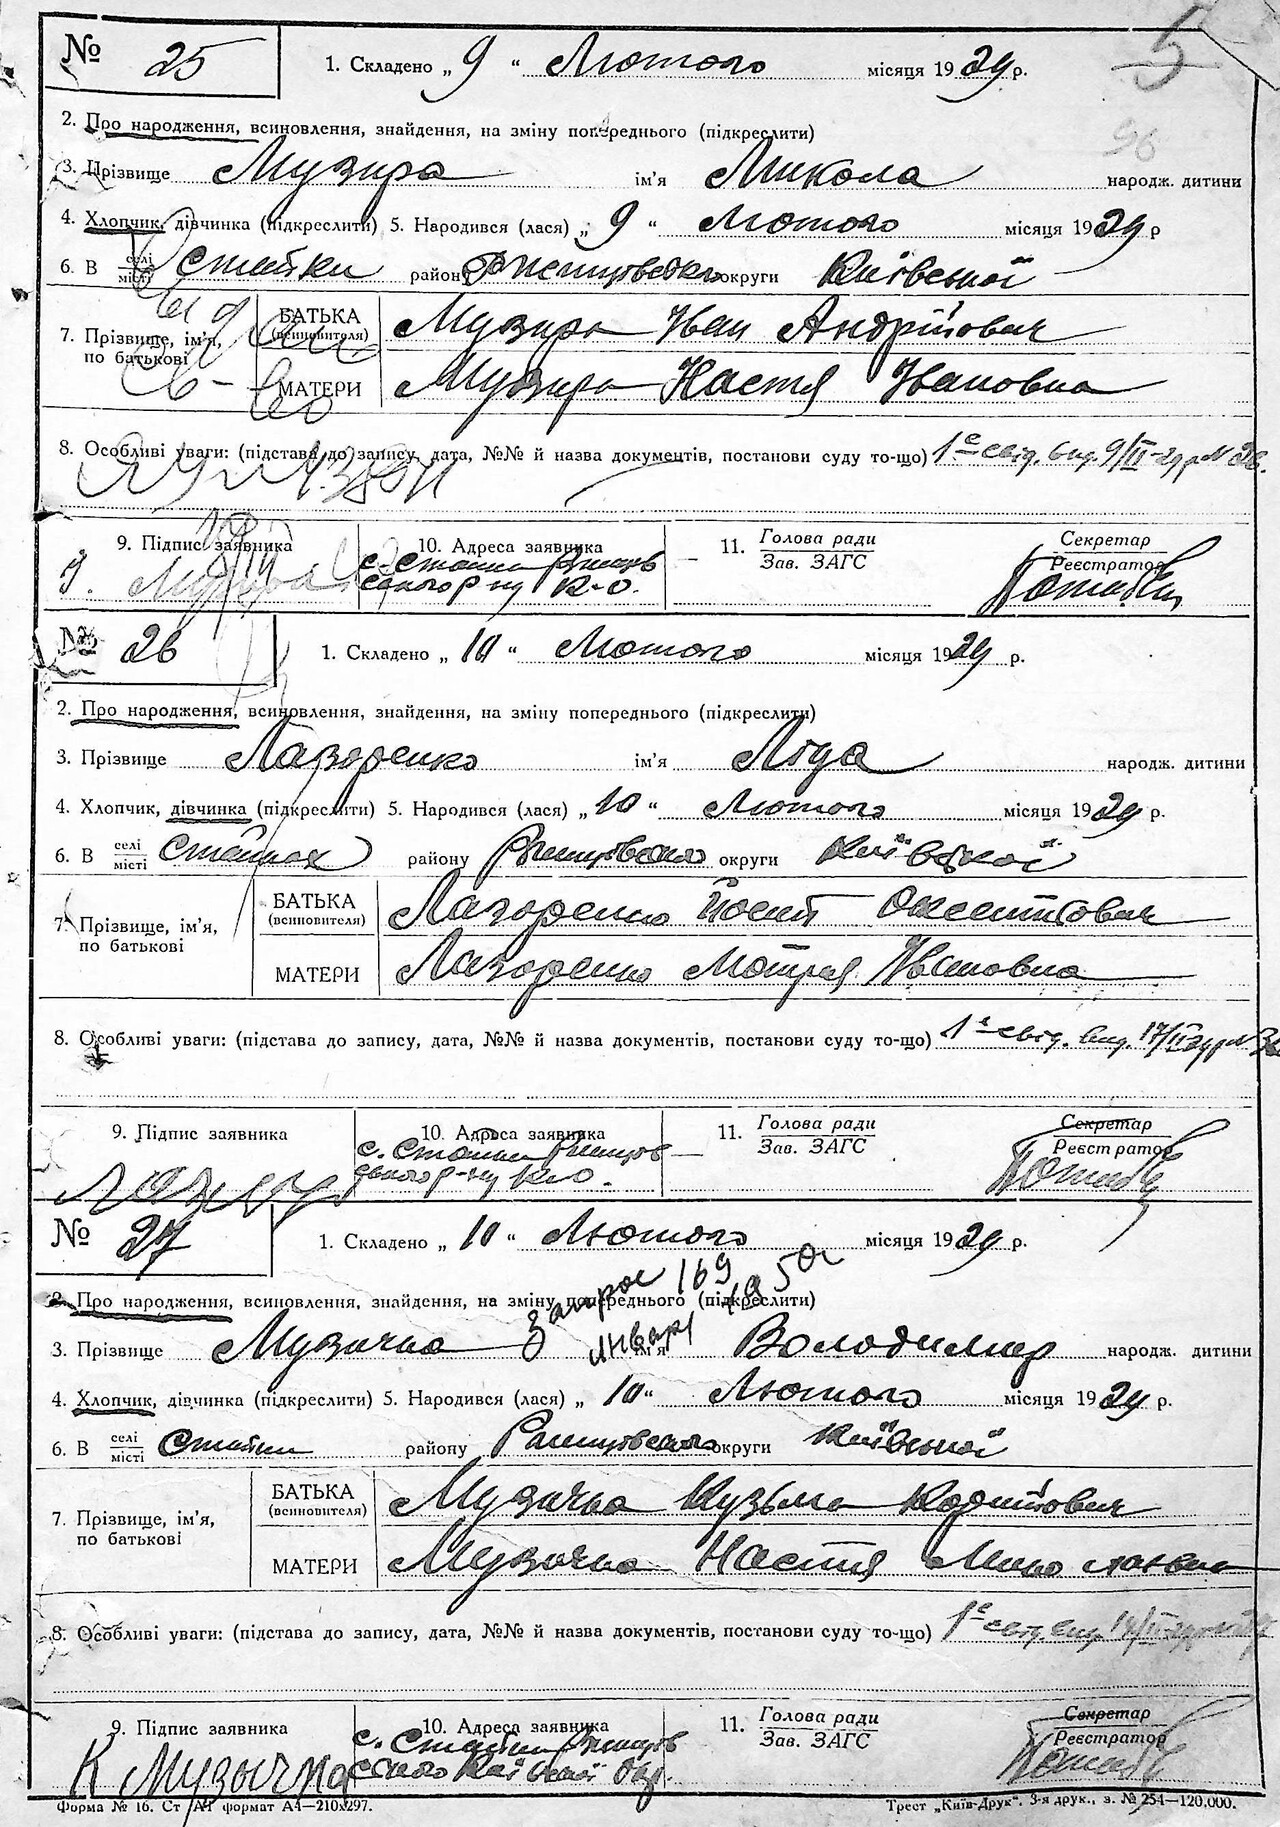 5
96
№ 25 1. Складено „ 9 “ Лютого місяця 1929 р.
2. Про народження, всиновлення, знайдення, на зміну попереднього (підкреслити)
3. Прізвище Музира ім'я Микола народж. дитини
4. Хлопчик, дівчинка (підкреслити) 5. Народився (лася) „ 9 “ Лютого місяця 1929 р
6. В селі місті Стайки району Ржищівсько округи Київської
7. Прізвище, ім'я, по батькові
БАТЬКА (всиновителя) Музира Іван Андрійович
МАТЕРИ Музира Настя Івановна
8. Особливі уваги: (підстава до запису, дата, №№ й назва документів, постанови суду то-що) 1е свід. вид. 9/II-29 р №26.
9. Підпис заявника 10. Адреса заявника 11. Голова ради Секретар
Зав. ЗАГС Реєстратор
с. Стайки Ржищів
ського р-ну К-О.
№ 26 1. Складено „ 10 “ Лютого місяця 1929 р.
2. Про народження, всиновлення, знайдення, на зміну попереднього (підкреслити)
3. Прізвище Лазоренко ім'я Ліда народж. дитини
4. Хлопчик, дівчинка (підкреслити) 5. Народився (лася) „ 10 “ Лютого місяця 1929 р.
6. В селі місті Стайках району Ржищівсько округи Київської
7. Прізвище, ім'я, по батькові
БАТЬКА (всиновителя) Лазоренко Йосип Оксентійович
МАТЕРИ Лазоренко Мотря Івановна
8. Особливі уваги: (підстава до запису, дата, №№ й назва документів, постанови суду то-що) 1е свід. вид. 17/II 29 р №
9. Підпис заявника 10. Адреса заявника 11. Голова ради Секретар
Зав. ЗАГС Реєстратор
с. Стайки Ржищів
ського р-ну К-О.
№ 27 1. Складено „ 10 “ Лютого місяця 1929 р.
Запрос 169
январ 1950г
2. Про народження, всиновлення, знайдення, на зміну попереднього (підкреслити)
3. Прізвище Музична ім'я Володимир народж. дитини
4. Хлопчик, дівчинка (підкреслити) 5. Народився (лася) „ 10 “ Лютого місяця 1929 р.
6. В селі місті Стайки району Ржищівського округи Київської
7. Прізвище, ім'я, по батькові
БАТЬКА (всиновителя) Музична Кузьма
МАТЕРИ Музична Настя
8. Особливі уваги: (підстава до запису, дата, №№ й назва документів, постанови суду то-що) 1е свід. вид.
9. Підпис заявника 10. Адреса заявника 11. Голова ради Секретар
Зав. ЗАГС Реєстратор
с. Стайки Ржищів
ського Київської Окр.
К Музычна
Форма № 16. Ст А4 формат А4—210х297. Трест „Київ-Друк“. 3-я друк., з. № 254—120.000.